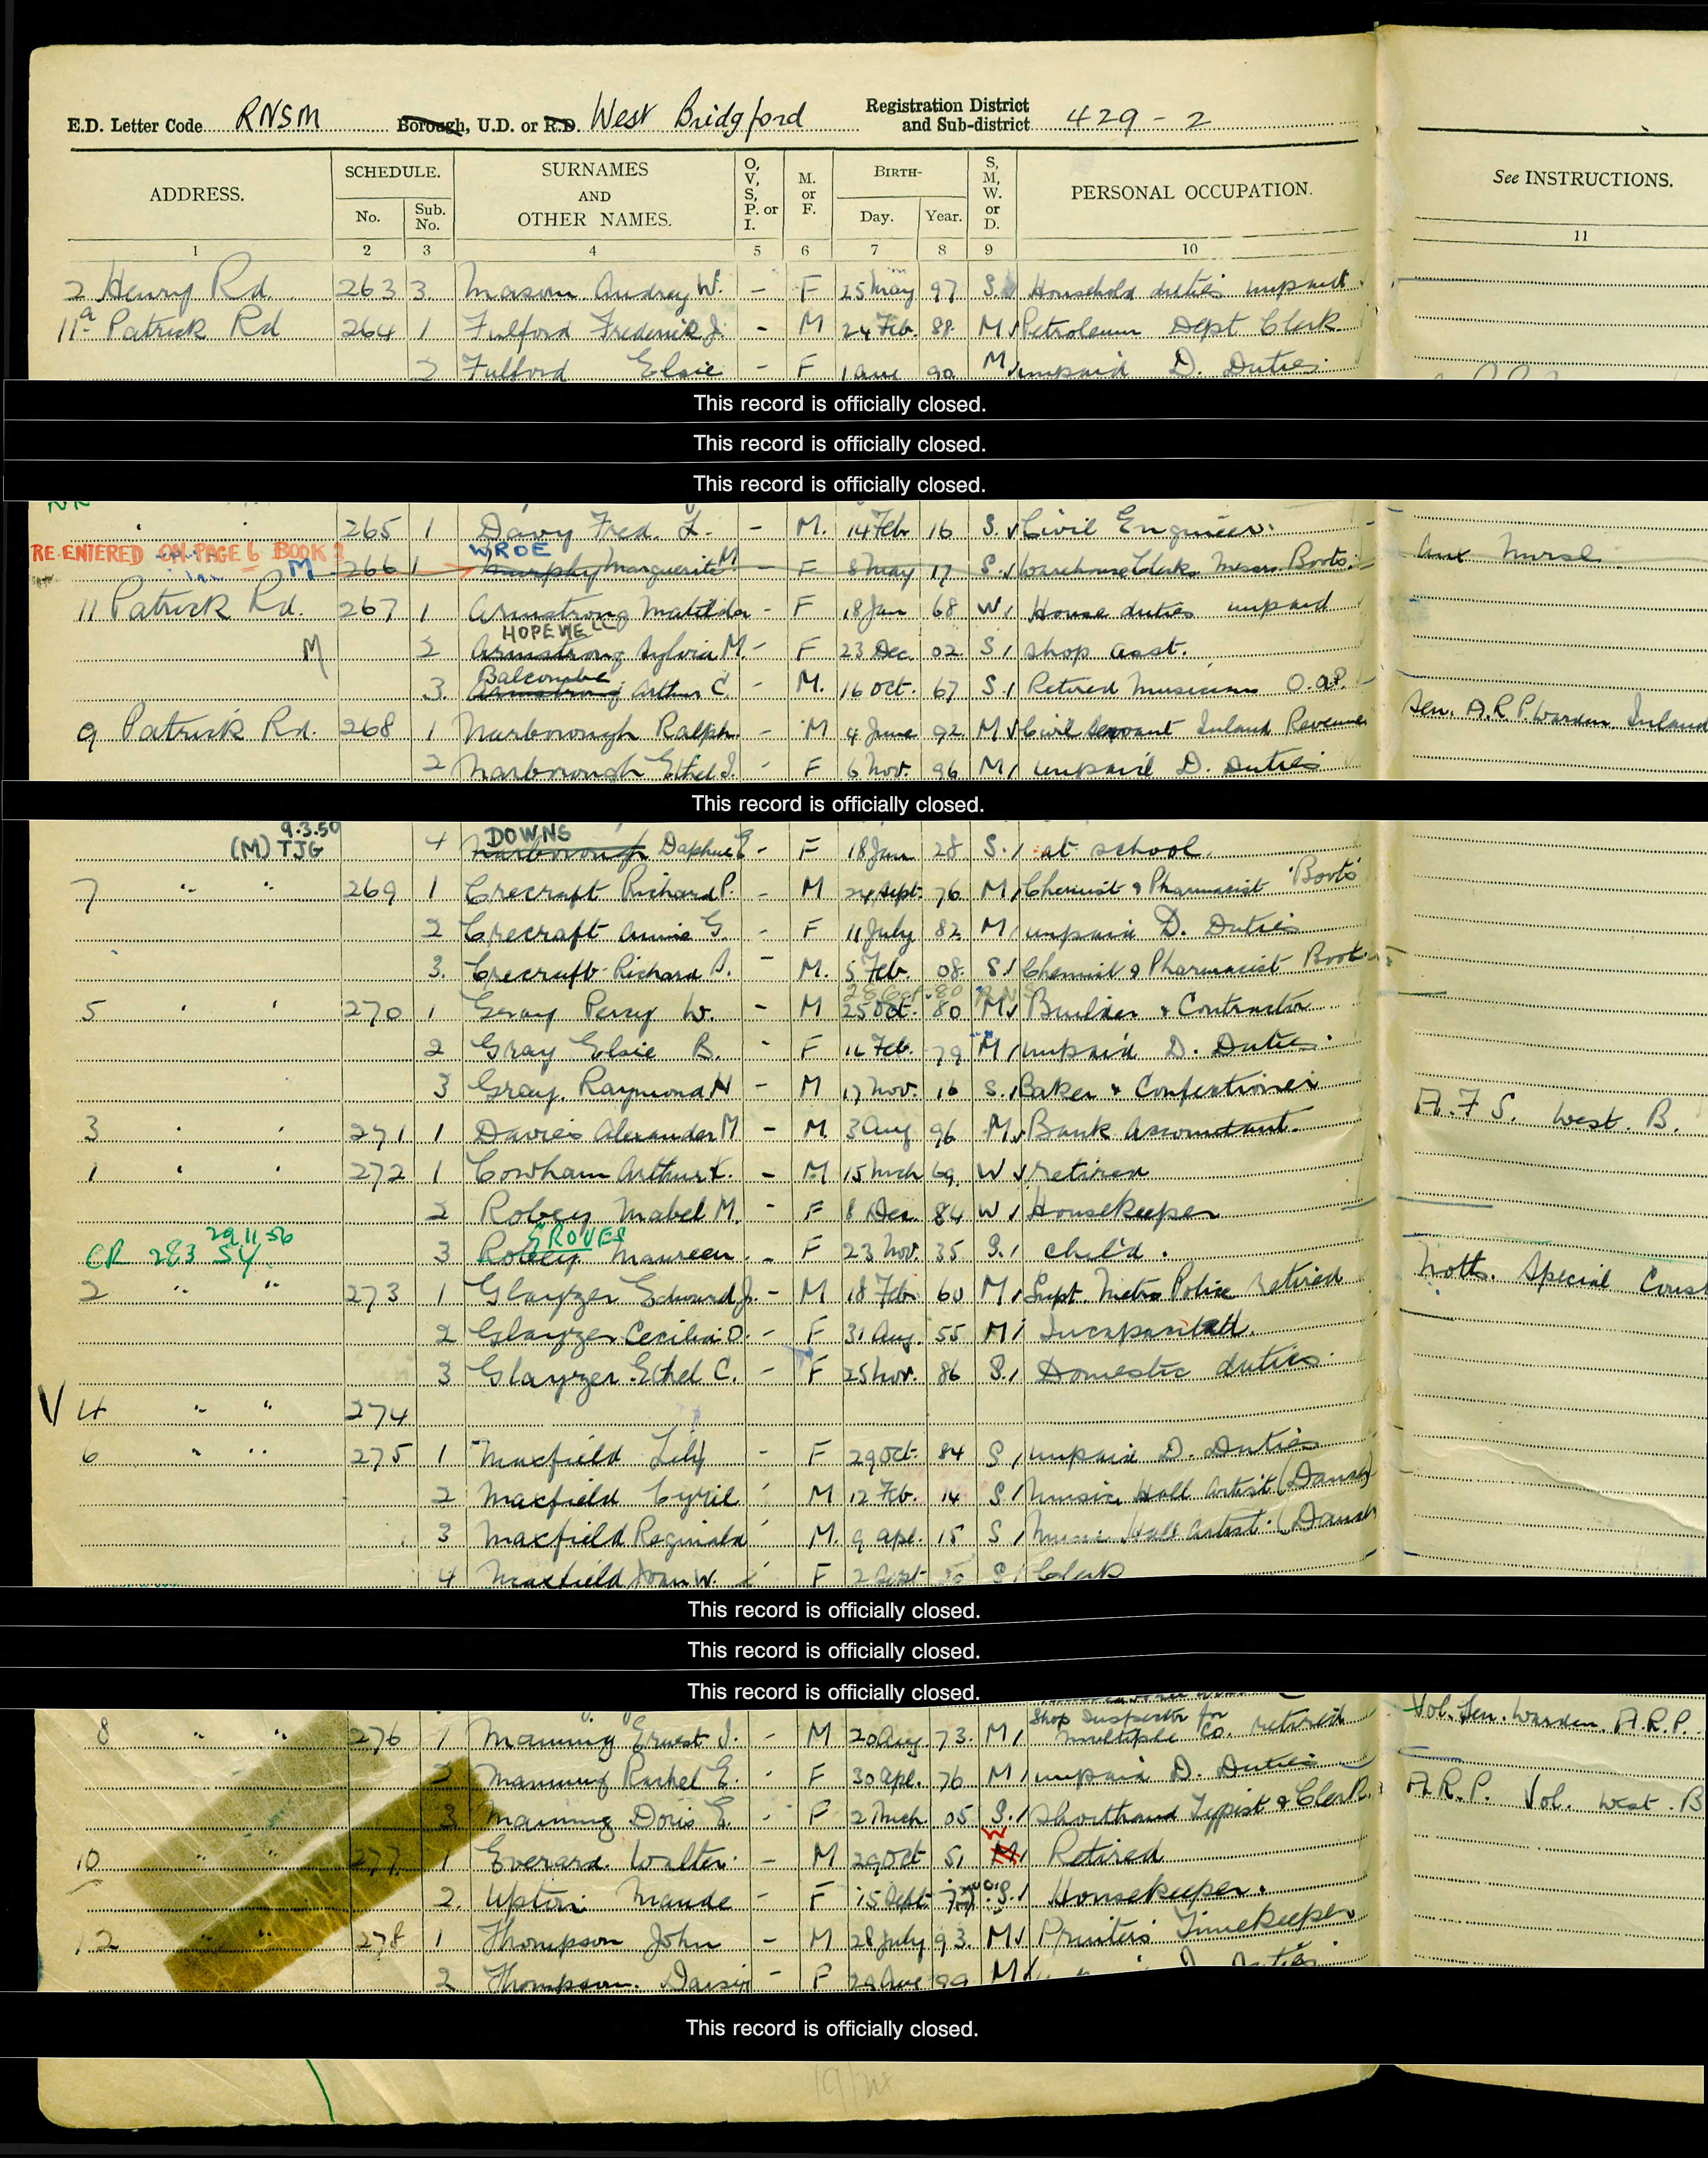 E.D. Letter Code RNSM Borough, U.D. or R.D. West Bridgford Registration District and Sub-district 429-2
ADDRESS. SCHEDULE. No. Sub. No. SURNAMES AND OTHER NAMES. O, V, S, P. or I. M. or F. BIRTH- Day. Year. S, M, W. or D. PERSONAL OCCUPATION. See INSTRUCTIONS.
1 2 3 4 5 6 7 8 9 10 11
2 Henry Rd. 263 3. Mason Audrey W. - F 25 May 97 S. Household duties unpaid
11a Patrick Rd 264 1 Fulford Frederick J. - M 24 Feb. 88 M Petroleum Dept Clerk
2 Fulford Elsie - F 1 Aug 90 M unpaid D. Duties
This record is officially closed.
This record is officially closed.
This record is officially closed.
265 1 Davy Fred. L. - M. 14 Feb 16 S. Civil Engineer.
RE-ENTERED ON PAGE 6 BOOK WROE
M 266 1 Murphy Marguerite M - F 8 May 17 S. Warehouse Clerk Messrs. Boots. Aux Nurse
11 Patrick Rd. 267 1 Armstrong Matilda - F 18 Jan 68 W House duties unpaid
HOPEWELL
M 2 Armstrong Sylvia M. - F 23 Dec. 02 S shop asst.
Balcombe
3. Armstrong Arthur C. - M. 16 Oct. 67 S. Retired Musician O.A.P.
9 Patrick Rd. 268 1 Narborough Ralph. - M 4 June 92 M Civil Servant Inland Revenue Sen. A.R.P. Warden Inland
2 Narborough Ethel J. - F 6 Nov. 96 M unpaid D. Duties
This record is officially closed.
9.3.50 DOWNS
(M) TJG 4 Narborough Daphne E - F 18 Jan 28 S. at school.
7 " " 269 1 Crecraft Richard P. - M 24 Sept. 76 M Chemist & Pharmacist Boots
2 Crecraft Annie G. - F 11 July 82 M unpaid D. Duties
3. Crecraft Richard S. - M. 5 Feb. 08. S. Chemist & Pharmacist Boots
28 Oct. 80
5 " " 270 1 Gray Percy W. - M 25 Oct. 80 M Builder & Contractor
2 Gray Elsie B. - F 16 Feb. 79 M unpaid D. Duties.
3 Gray. Raymond H - M 17 Nov. 16 S. Baker & Confectioner
3 " " 271 1 Davies Alexander M - M. 3 Aug 96 M Bank Accountant. A.F.S. West. B.
1 " " 272 1 Cowham Arthur L. - M 15 Mch 69. W retired
2 Robey Mabel M. - F 8 Dec. 84 W Housekeeper
29.11.56 GROVES
CR 283 SY 3 Robey Maureen - F 23 Nov. 35. S. child.
2 " " 273 1 Glayzer Edward J. - M 18 Feb 60 M Supt. Metro Police retired Notts. Special Const
2 Glayzer Cecilia O. - F 31 Aug. 55 M Incapacitated.
3 Glayzer Ethel C. - F 25 Nov. 86 S. Domestic duties.
V 4 " " 274
6 " " 275 1 Maxfield Lily - F 29 Oct. 84 S unpaid D. Duties
2 Maxfield Cyril M 12 Feb. 14 S Music Hall Artist (Dancer)
3 Maxfield Reginald M. 9 Apl. 15 S Music Hall Artist. (Dancer
4 Maxfield Joan W. F 2 Sept 20 S Clerk
This record is officially closed.
This record is officially closed.
This record is officially closed.
8 " " 276 1 Manning Ernest J. - M 20 Aug. 73. M Shop Inspector for multiple Co. retired Vol. Sen. Warden. A.R.P.
2 Manning Rachel E. - F 30 Apl. 76 M unpaid D. Duties
3 Manning Doris E. - F 2 Mch. 05 S. Shorthand Typist & Clerk. A.R.P. Vol. West. B
W
10 " " 277 1 Everard. Walter. - M 29 Oct 51 M Retired
2. Upton Maude - F 15 Sept 77 S. Housekeeper.
12 " " 278 1 Thompson John - M 28 July 93. M Printers Timekeeper
2 Thompson. Daisy - F 29 Aug 99 M D. Duties.
This record is officially closed.